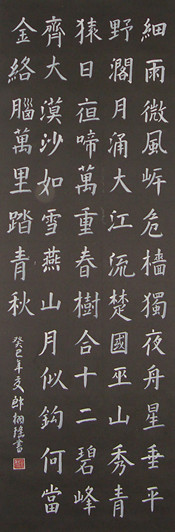 細雨微風岸危檣獨夜舟星垂平
野濶月涌大江流楚國巫山秀青
猿日亱啼萬重春樹合十二碧峰
齊大漠沙如雪燕山月似鈎何當
金絡腦萬里踏青秋
癸巳年夏書